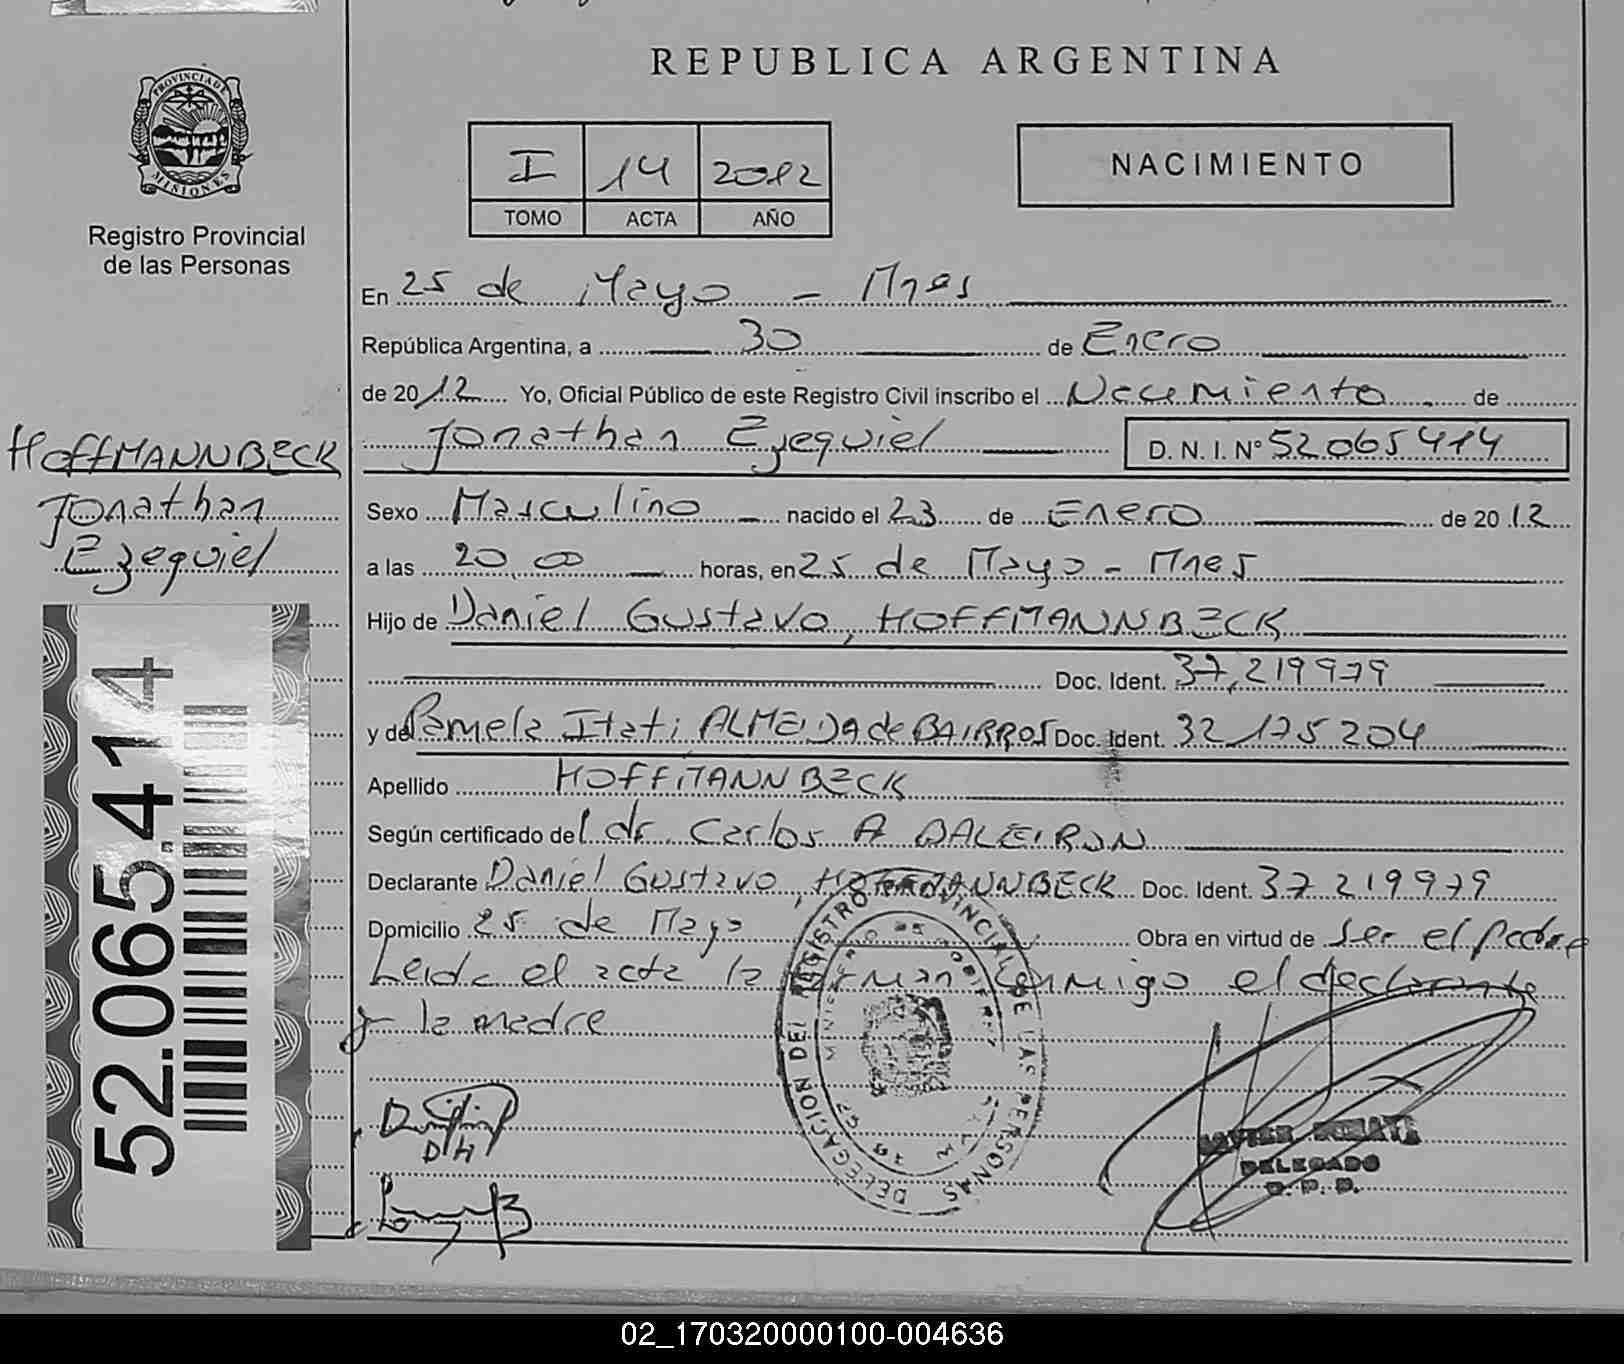 REPUBLICA ARGENTINA
PROVINCIA DE
MISIONES
Registro Provincial
de las Personas
I 14 2012
TOMO ACTA AÑO
NACIMIENTO
En 25 de Mayo - Mnes
República Argentina, a 30 de Enero
de 2012 Yo, Oficial Público de este Registro Civil inscribo el Nacimiento de
Jonathan Ezequiel D. N. I. Nº 52065414
HOFFMANNBECK
Jonathan
Ezequiel
Sexo Masculino nacido el 23 de Enero de 2012
a las 20,00 horas, en 25 de Mayo - Mnes
Hijo de Daniel Gustavo, HOFFMANNBECK
Doc. Ident. 37,219979
y de Pamela Itati ALMEIDA de BAIRROS Doc. Ident. 32175204
Apellido HOFFMANNBECK
Según certificado del dr. Carlos A
Declarante Daniel Gustavo, HOFFMANNBECK Doc. Ident. 37219979
Domicilio 25 de Mayo Obra en virtud de ser el padre
Leida el acta la firman conmigo el declarante
y la madre
52.065.414
DELEGACION DEL REGISTRO PROVINCIAL DE LAS PERSONAS
DH
JAVIER
DELEGADO
02_170320000100-004636